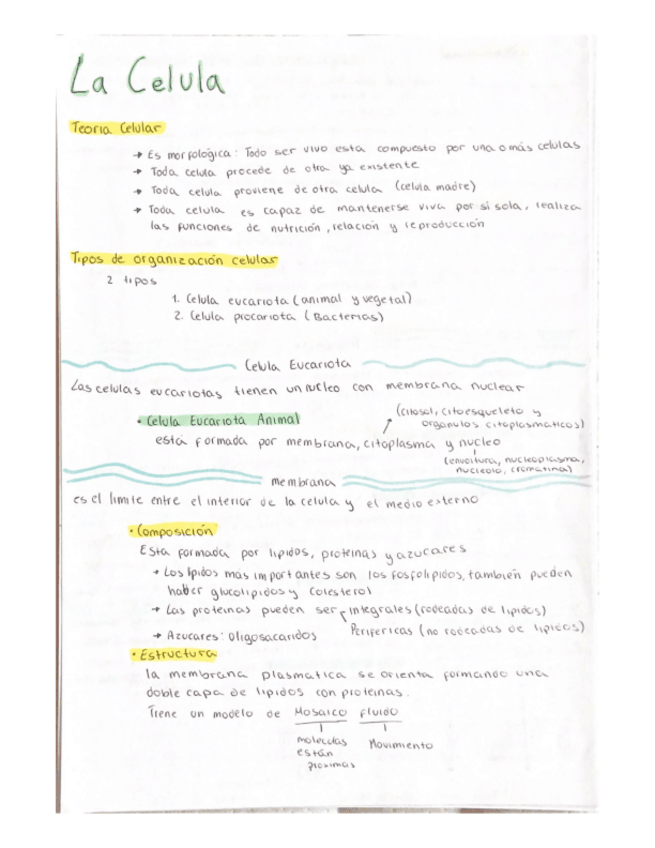 La Celula
Teoria Celular
→ Es morfológica: Todo ser vivo esta compuesto por una o más celulas
→ Toda celula procede de otra ya existente
→ Toda celula proviene de otra celula (celula madre)
→ Toda celula es capaz de mantenerse viva por si sola, realiza
las funciones de nutrición, relacion y reproducción
Tipos de organización celular
2 tipos
1. Celula eucariota (animal y vegetal)
2. Celula procariota (Bacterias)
Celula Eucariota
Las celulas eucariotas tienen un nucleo con membrana nuclear
• Celula Eucariota Animal
(citosol, citoesqueleto y
organulos citoplasmaticos)
está formada por membrana, citoplasma y nucleo
(envoltura, nucleoplasma,
nucleolo, cromatina)
membrana
es el limite entre el interior de la celula y el medio externo
• Composición
Esta formada por lipidos, proteinas y azucares
→ Los lpidos mas importantes son los fosfolipidos, también pueden
haber glucolipidos y colesterol
→ Las proteinas pueden ser Integrales (rodeadas de lipidos)
Perifericas (no rodeadas de lipidos)
→ Azucares: Oligosacaridos
• Estructura
la membrana plasmatica se orienta formando una
doble capa de lipidos con proteinas.
Tiene un modelo de Mosaico fluido
moleculas
están
proximas
Movimiento